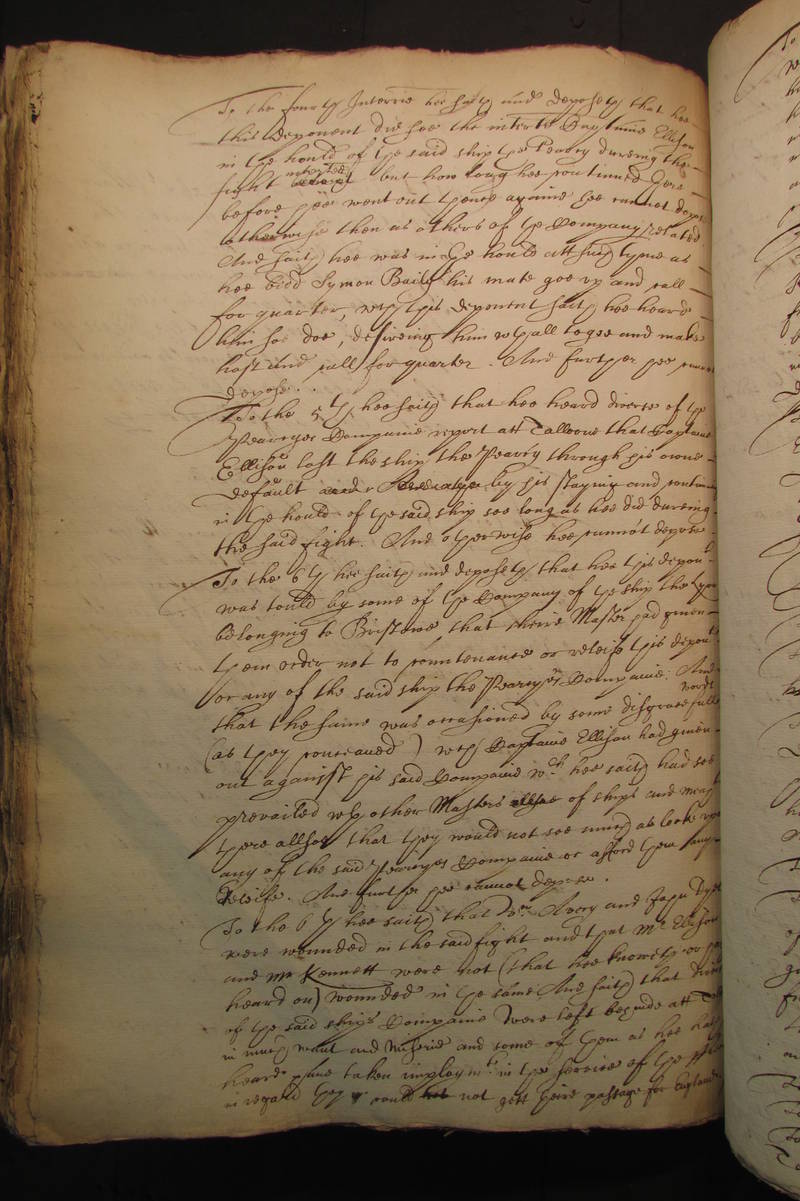 To the fourth Interrie hee saith and deposeth that hee
this deponent did see the interr: Captaine Ellison
in the hould of the said ship the Pearry dureing the
fight but how long hee continued there
before hee went out thence againe hee cannot depose
otherwise then as others of the Company related
And saith hee was in the hould att such tyme as
hee bidd Symon Baily his mate goe up and call
for quarter, wch this deponent saith hee heard
him soe doe, desireing him wthall to goe and make
hast and call for quarter. And further hee cannot
depose.
To the 5th hee saith that hee heard diverse of the
Pearryes Companie report att that Captaine
Ellison lost the ship the Pearry through his owne
default by his staying and
in the hould of the said ship soe long as hee did dureing
the said fight. And otherwise hee cannot depose
To the 6th hee saith and deposeth that hee this depont
was tould by some of the Company of the ship the
belonging to Bristowe, that theire Master had given
them order not to countenance or releife this depont
or any of the said ship the Pearryes Companie. And
that the same was occasioned by some disgracefull words
(as they conceaved) wch Captaine Ellison had given
out against his said Companie wch hee saith had soe
prevailed wth other Masters of ships and
there allsoe that they would not soe much as looke upon
any of the said Pearryes Companie or afford them any
Releife. And further hee cannot depose.
To the 6th hee saith that Avery and
were wounded in the said fight and that Mr Ellison
and Mr Kennett were not (that hee knoweth or
heard on) wounded in the same And saith that
of the said ships Companie were left behinde att
in much want and Miserie and some of them as hee hath
heard taken imploymts in the service of the
in regard they could not gett theire passage for England